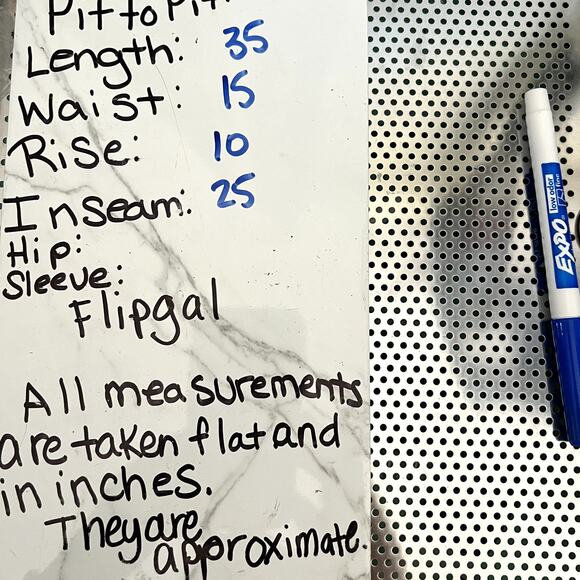 Pit to Pit:
Length: 35
Waist: 15
Rise: 10
Inseam: 25
Hip:
Sleeve:
Flipgal
All measurements
are taken flat and
in inches.
They are
approximate.
EXPO
low odor
fine